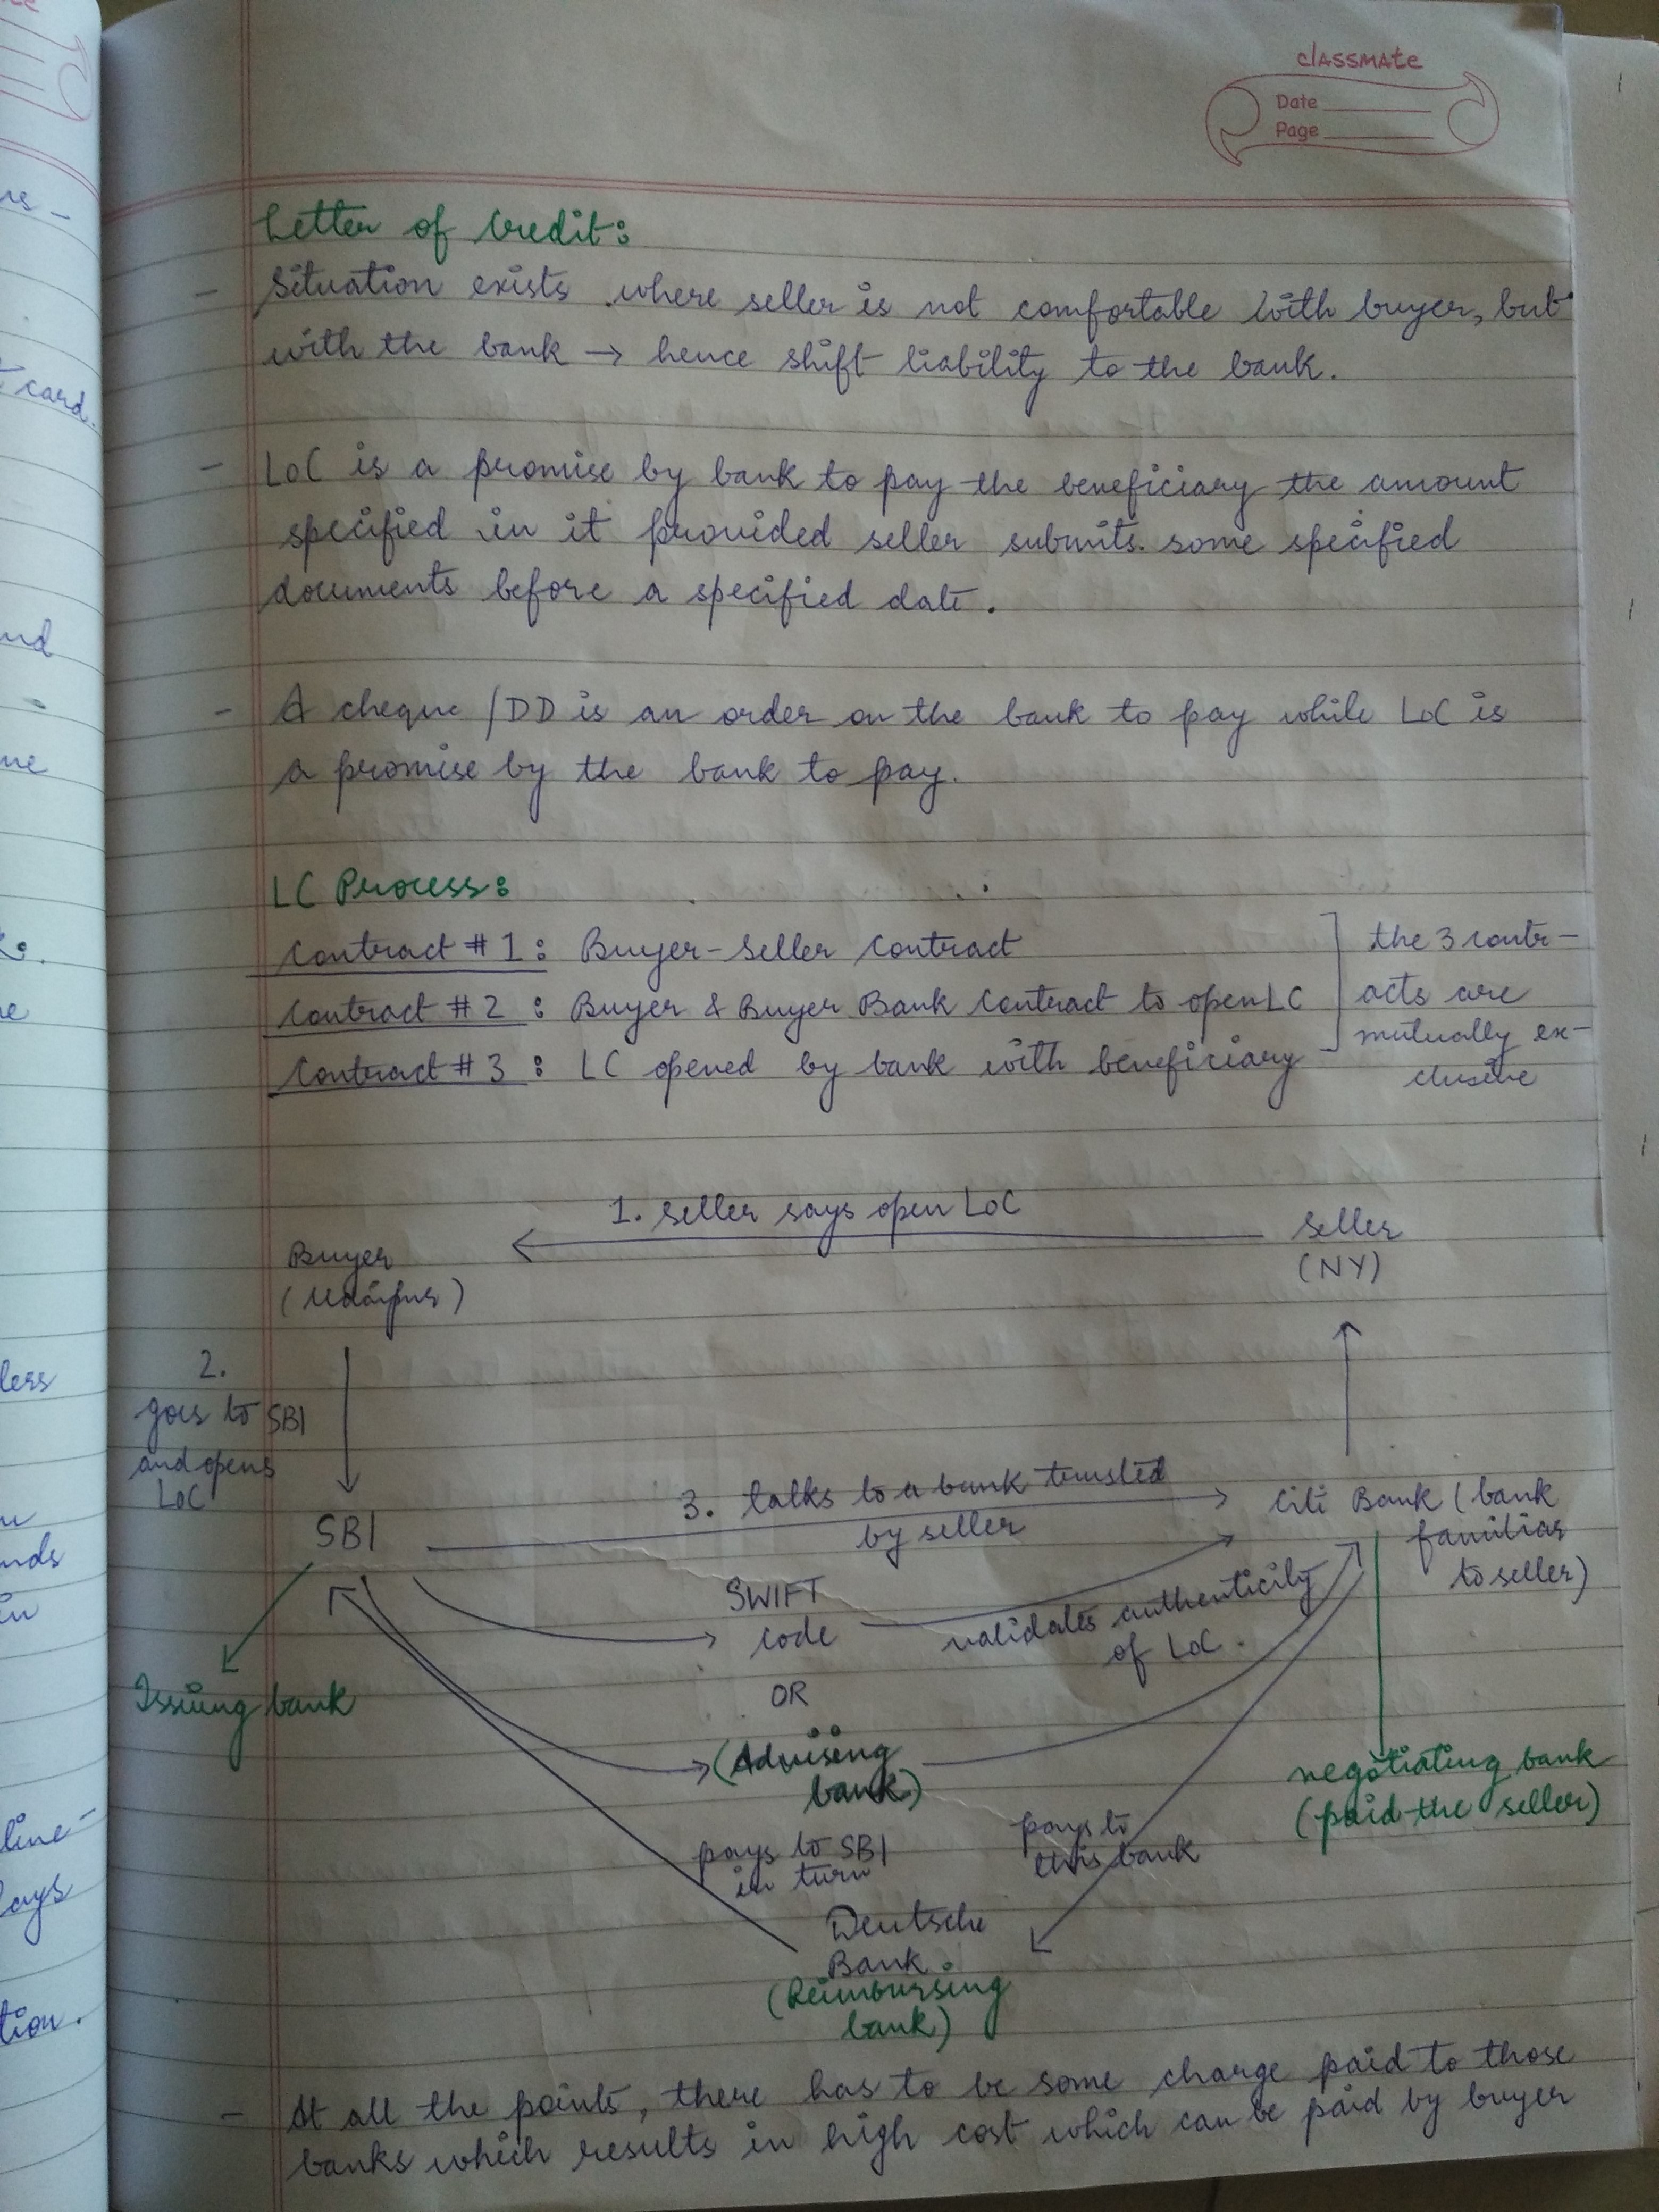 classmate
Date
Page
Letter of Credit:
- Situation exists where seller is not comfortable with buyer, but
with the bank → hence shift liability to the bank.
- LoC is a promise by bank to pay the beneficiary the amount
specified in it provided seller submits some specified
documents before a specified date.
- A cheque / DD is an order on the bank to pay while LoC is
a promise by the bank to pay.
LC Process:
Contract # 1: Buyer-Seller Contract
Contract # 2: Buyer & Buyer Bank Contract to open LC
Contract # 3: LC opened by bank with beneficiary
the 3 contr-
acts are
mutually ex-
clusive
1. Seller says open LoC
Buyer
(Udaipur)
Seller
(NY)
2.
goes to SBI
and opens
LoC
SBI
3. talks to a bank trusted
by seller
Citi Bank (bank
familiar
to seller)
SWIFT
code
validates authenticity
of LoC.
OR
Issuing bank
(Advising
bank)
negotiating bank
(paid the seller)
pays to SBI
in turn
pays to
this bank
Deutsche
Bank
(Reimbursing
bank)
- At all the points, there has to be some charge paid to those
banks which results in high cost which can be paid by buyer
card.
nd
ne
less
nds
in
line-
ays
tion.